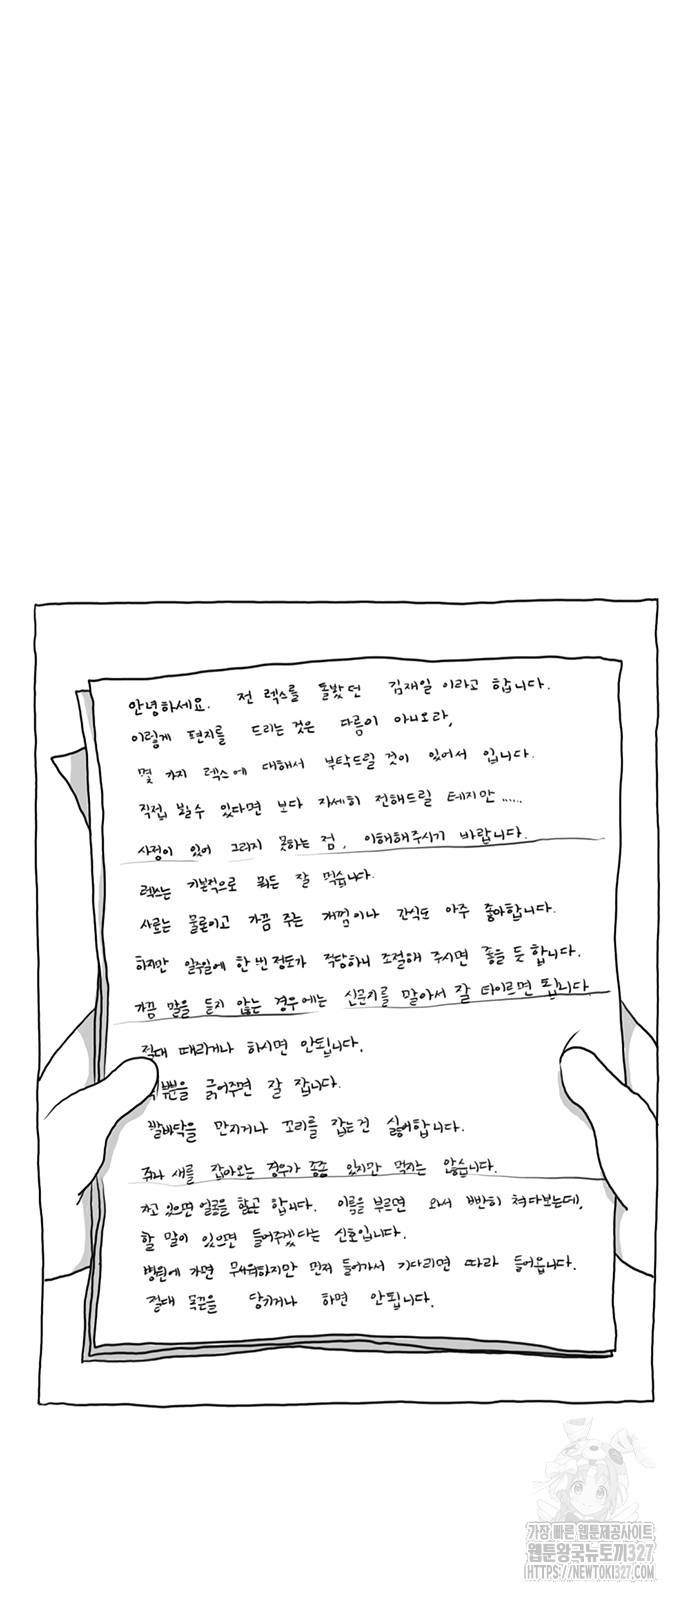 안녕하세요. 전 렉스를 돌봤던 김재일 이라고 합니다.
이렇게 편지를 드리는 것은 다름이 아니오라,
몇 가지 렉스에 대해서 부탁드릴 것이 있어서 입니다.
직접 뵐수 있다면 보다 자세히 전해드릴 테지만......
사정이 있어 그러지 못하는 점, 이해해주시기 바랍니다.
렉스는 기본적으로 뭐든 잘 먹습니다.
사료는 물론이고 가끔 주는 개껌이나 간식도 아주 좋아합니다.
하지만 일주일에 한 번 정도가 적당하니 조절해 주시면 좋을 듯 합니다.
가끔 말을 듣지 않는 경우에는 신문지를 말아서 잘 타이르면 됩니다.
절대 때리거나 하시면 안됩니다.
뿐을 긁어주면 잘 잡니다.
발바닥을 만지거나 꼬리를 잡는건 싫어합니다.
쥐나 새를 잡아오는 경우가 종종 있지만 먹지는 않습니다.
자고 있으면 얼굴을 핥곤 합니다. 이름을 부르면 와서 빤히 쳐다보는데,
할 말이 있으면 들어주겠다는 신호입니다.
병원에 가면 무서워하지만 먼저 들어가서 기다리면 따라 들어옵니다.
절대 목끈을 당기거나 하면 안됩니다.
가장 빠른 웹툰제공사이트
웹툰왕국뉴토끼327
HTTPS://NEWTOKI327.COM